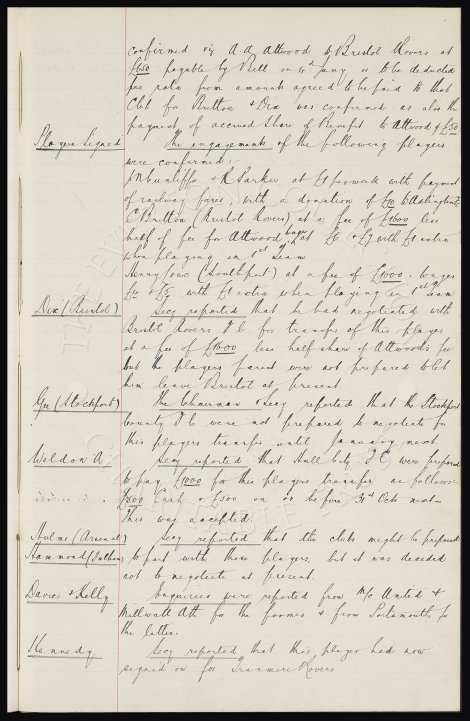 confirmed viz A.A. Attwood to Bristol Rovers at
£650 payable by Bill on 4th Jany or to be deducted
pro rata from amounts agreed to be paid to that
Club for Britton & Dix was confirmed as also the
payment of accrued share of Benefit to Attwood of £50
Players Signed The engagements of the following players
were confirmed:-
J N Cunliffe & R Parker, at £ per week with payment
of railway fares, with a donation of £10 to Adlington
C Britton (Bristol Rovers) at a fee of £1600 less
half of fee for Attwood, wages at £6 & £7 with £1 extra
when playing in 1st Team
Henry Lowe (Southport) at a fee of £1000. Wages
& with £1 extra when playing in 1st Team
Dix (Bristol) Secy reported that he had negotiated with
Bristol Rovers F C for transfer of this player
at a fee of £1600 less half share of Attwoods fee
but the players parent were not prepared to let
him leave Bristol at present.
Gee (Stockport) The Chairman & Secy reported that the Stockport
County F C were not prepared to negotiate for
this players transfer until January next
Weldon A. Secy reported that Hull City F C were prepared
to pay £1000 for this players transfer as follows:
£500 Cash & £500 on or before 31st Octr next-
This was accepted.
Hulme (Arsenal) Secy reported that the clubs might be prepared
Hammond (Fulham) to part with these players, but it was decided
not to negotiate at present.
Davies & Kelly Enquiries were reported from M/c United &
Millwall Ath for the former & from Portsmouth for
the latter.
Kennedy Secy reported that this player had now
signed on for Tranmere Rovers